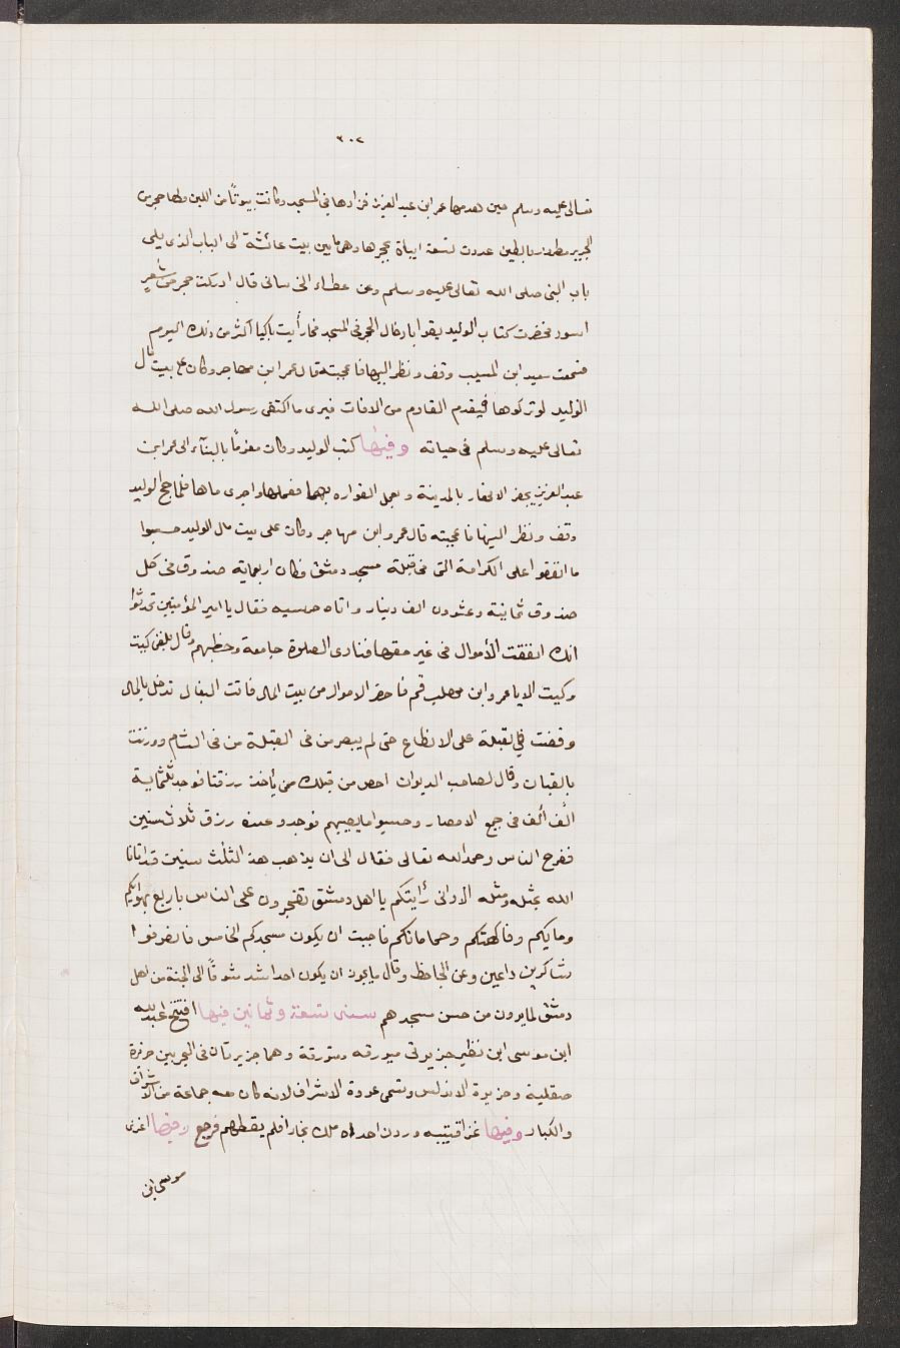 ٣٠٧
تعالى عليه وسلم حين هدمها عمر ابن عبد العزيز فزادها في المسجد وكانت بيوتًا من اللبن ولها حجر من
الجريد مطرور بالطين عددت تسعة ابيات بحجرها وهى ما بين بيت عائشة الى الباب الذى يلى
باب النبى صلى الله تعالى عليه وسلم وعن عطاء الخراسانى قال ادركت حجر من شعرٍ
اسود فحضرت كتاب الوليد يقرا بادخال الحجر في المسجد فما رأيت باكيا اكثر من ذلك اليوم
فسمعت سعيد ابن المسيب وقف ونظر اليها فاعجبته قال عمر ابن مهاجر وكان على بيت مال
الوليد لو تركوها فيقدم القادم من الافات فيرى ما اكتفى رسول الله صلى الله
تعالى عليه وسلم فى حياته وفيها كتب الوليد وكان مغرمًا بالبنآء الى عمر ابن
عبد العزيز بحفر الانهار بالمدينة وبعمل الفواره بها فعملها واجرى ماها فلما حج الوليد
وقف ونظر اليها فاعجبته قال عمرو ابن مهاجر وكان على بيت مال الوليد حسبوا
ما انفقوا على الكرامة التى فى قبلة مسجد دمشق فكان اربعماية صندوق فى كل
صندوق ثمانية وعشرون الف دينار واتاه حرسيه فقال يا امير المؤمنين تحدثوا
انك انفقت الأموال فى غير حقها فنادى الصلوة جامعة وخطبهم وقال بلغنى كيت
وكيت الا يا عمرو ابن مهلب قم فاحضر الاموال من بيت المال فاتت البغال تدخل بالمال
وفضت في القبلة على الانطاع حتى لم يبصر من فى القبلة من فى الشام ووزنت
بالقبان وقال لصاحب الديوان احص من قبلك من يأخذ رزقنا فوجد ثلثماية
الف ألف فى جميع الامصار وحسبوا ما يصيبهم فوجدو عنده رزق ثلاث سنين
ففرح الناس وحمد الله تعالى فقال الى ان يذهب هذه الثلث سنين قد اتانا
الله بمثله ومثله الا وانى رأيتكم يا اهل دمشق تفخرون على الناس باربع بهوايكم
ومايكم وفاكهتكم وحماماتكم فاحببت ان يكون مسجدكم الخامس فانصرفوا
شاكرين داعين وعن الجاحظ وقال ما يجوز ان يكون احد اشد شوقًا الى الجنة من اهل
دمشق لما يرون من حسن مسجدهم سنة تسعة وثمانين فيها افتتح عبد الله
ابن موسى ابن نصير جزيرتى ميورقه ومنورقة وهما جزيرتان فى البحر بين جزيرة
صقلية وجزيرة الاندلس وتسمى غزوة الاشراف لانه كان معه جماعة من الاشراف
والكبار وفيها غزا قتيبه وردن احداه ملك بخارا فلم يقطهم فرجع وفيها اغزى
موسى ابن